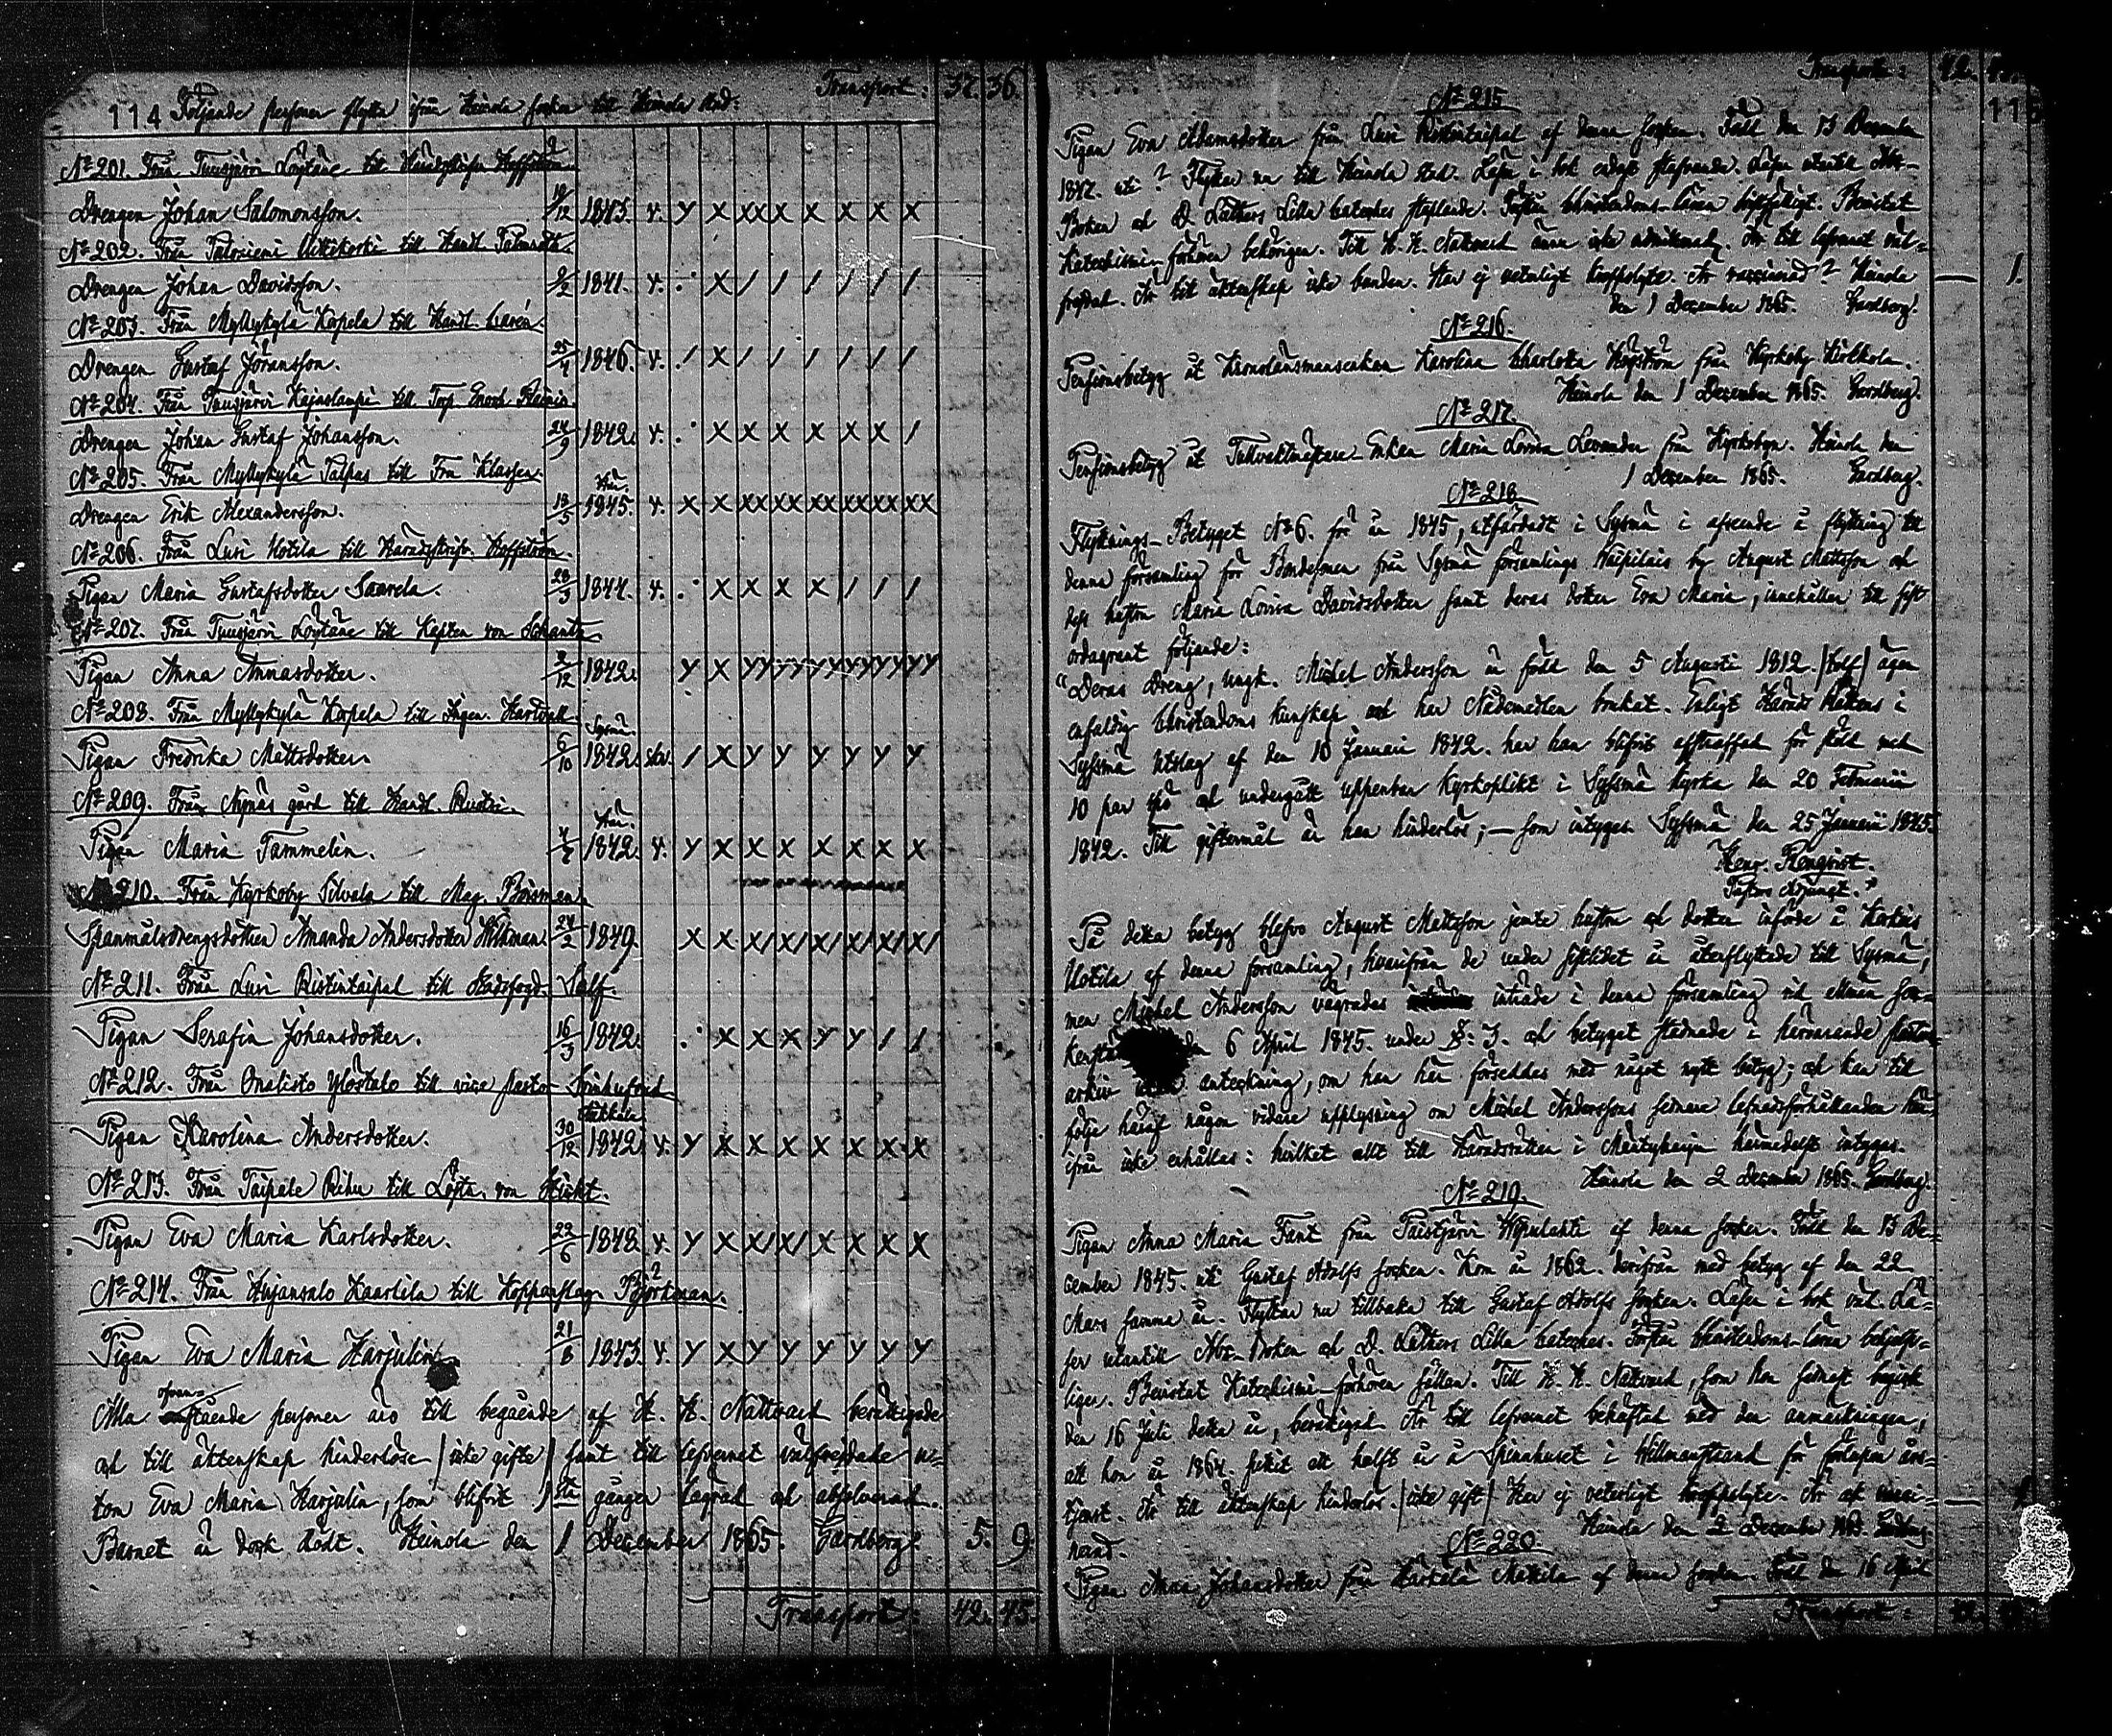 114 Följande personer flytta ifrån Heinola socken till Heinola stad: Transport: 37. 36.
No 201. Från Tuusjärvi Löytäne till Häradsskrifv. Hoffström.
Drengen Johan Salomonsson. 12 1843. v. y x xx x x x x x
No 202. Från till Handl.
Drengen Johan Davidsson. 2/2 1841. v. . x / / / / / /
No 203. Från Myllykylä Korpela till Handl.
Drengen Gustaf Göransson. 1846. v. / x / / / / / /
No 204. Från Tuusjärvi Kajaslampi till Torp. Enoch
Drengen Johan Gustaf Johansson. 24/9 1842. v. . x x x x x x /
No 205. Från Myllykylä Talpas till Fru Klassen.
Drengen Erik Alexandersson. 13/5 1845. v. x x xx xx xx xx xx xx
No 206. Från Lusi Uotila till Häradsskrifv. Hoffström.
Pigan Maria Gustafsdotter Saarela. 28/3 1844. v. . x x x x / / /
No 207. Från Tuusjärvi Löytäne till Kapten von Schantz
Pigan Anna Annasdotter. 12 1842. y x yy yy yy yy yy yy
No 208. Från Myllykylä Korpela till Ingen. Hartvall
Sysmä.
Pigan Fredrika Mattsdotter 6/10 1842. / x y y y y y y
No 209. Från Nynäs gård till Handl.
Pigan Maria Tammelin. 1842. v. y x x x x x x x
210. Från Kyrkoby Silvala till Mag. Boisman.
Spanmålsdrengsdottren Amanda Andersdotter Wikman. 24/2 1849. x x x/ x/ x/ x/ x/ x/
No 211. Från Lusi Ristintaipal till Stadsfogd.
Pigan Serafia Johansdotter. 16/3 1842. . x x x y y / /
No 212. Från Onalisto Ylöstalo till vice pastor Svinhufvud
Pigan Karolina Andersdotter. 30/12 1842. v. y x x x x x x x
No 213. Från Taipale Rihu till Löjtn. von
Pigan Eva Maria Karlsdotter. 22/6 1848. v. y x x/ x/ x x x x
No 214. Från Hujansalo Kaartila till Björkman.
Pigan Eva Maria Harjulin 21 1843. v. y x y y y y y y
ofvan-
Alla stående personer äro till begående af H. H. Nattvard berättigade
och till äktenskap hinderlöse /icke gifte/ samt till lefvernet välfrejdade u-
tom Eva Maria Harjulin, som blifvit gången lagförd och absolverad.
Barnet är dock dödt. Heinola den 1 December 1865. Gardberg. 5. 9.
Transport: 42. 45.
Transport: 42.
No 215
Pigan Eva Adamsdotter från Lusi Ristintaipal af denna socken. Född den 13 December
1847. uti? Flyttar nu till Heinola stad. Läser i bok endast stafvande. Läser utantill Abc-
Boken och D. Luthers Lilla Cateches staplande. Förstår Christendoms-läran Bevistat
Katechismi-förhören behörigen. Till H. H. Nattvard ännu icke admitterad. Är till lefvernet väl-
frejdad. Är till äktenskap icke bunden. Har ej veterligt kroppslyte. Är vaccinerad? Heinola — 1.
den 1 December 1865. Gardberg.
No 216.
Pensionsbetyg åt Kronolänsmansenkan Karolina Charlotta Högström från Kyrkoby
Heinola den 1 December 1865. Gardberg.
No 217.
Pensionsbetyg åt Enkan Maria Lovisa Levander från Kyrkobyn. Heinola den
1 December 1865. Gardberg.
No 218
Flyttnings-Betyget No 6. för år 1845, utfärdadt i Sysmä i afseende å flyttning till
denna församling för Bondesonen från Sysmä församlings by August Mattsson och
dess hustru Maria Lovisa Davidsdotter samt deras dotter Eva Maria, innehåller till sist
ordagrant följande:
"Deras Dreng, ungk. Michel Andersson är född den 5 Augusti 1812. /tolf/ ägen
enfaldig Christendoms Kunskap och har Nådemedlen brukat. Enligt Härads Rättens i
Syssmä Utslag af den 10 Januari 1842. har han blifvit afstraffad för stöld med
10 par spö och undergått uppenbar Kyrkoplikt i Syssmä Kyrka den 20 Februarii
1842. Till giftermål är han hinderlös; — som intygas. Syssmä den 25 Januarii 1845.
Henr. Renqvist.
Pastors Adjunct."
På detta betyg blefvo August Mattsson jemte hustru och dotter införde å
Uotila af denna församling, hvarifrån de under sistlidet år återflyttade till Sysmä;
men Michel Andersson vägrades inträde i denna församling vid allmän
6 April 1845. under §: 3. och betyget stadnade i härvarande
arkiv anteckning, om han här försetts med något nytt betyg; och kan till
följe häraf någon vidare upplysning om Michel Anderssons sednare lefnadsförhållanden här-
ifrån icke erhållas: hvilket allt till Häradsrätten i Mäntyharju härmedelst intygas.
Heinola den 2 December 1865. Gardberg.
No 219.
Pigan Anna Maria Fant från af denna socken. Född den 13 De-
cember 1845. uti Gustaf Adolfs socken. Kom år 1862. derifrån med betyg af den 22
Mars samma år. Flyttar nu tillbaka till Gustaf Adolfs socken. Läser i bok väl. Lä-
ser utantill Abc-Boken och D. Luthers Lilla Cateches. Förstår Christendoms-läran
ligen. Bevistat Katechismi-förhören sällan. Till H. H. Nattvard, som hon sednast begick
den 16 Juli detta år, berättigad. Är till lefvernet behäftad med den anmärkningen,
att hon år 1864. sutit ett halft år å Spinnhuset i Willmanstrand för
tjenst. Är till äktenskap hinderlös. /icke gift/ Har ej veterligt kroppslyte. Är ock vacci- —
nerad. Heinola den 2 December 1865. Gardberg.
No 220.
Pigan Anna Johansdotter från af denna socken. Född den 16 April
Transport: